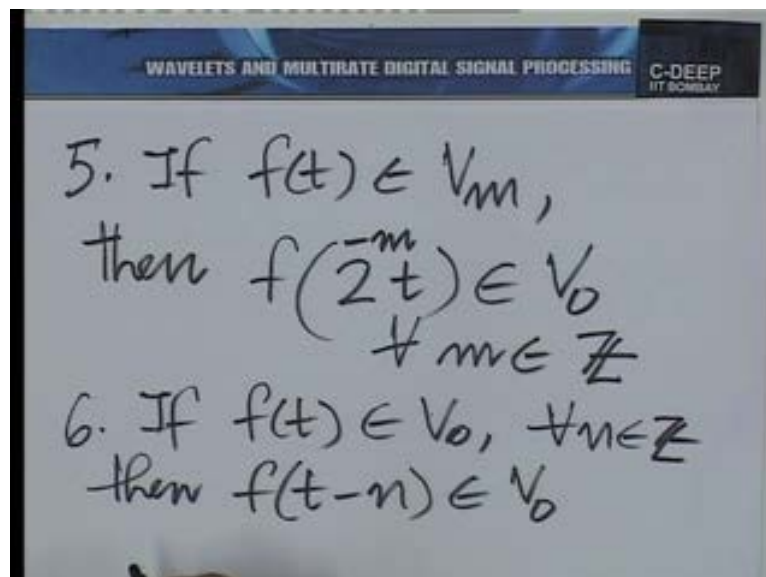 WAVELETS AND MULTIRATE DIGITAL SIGNAL PROCESSING
C-DEEP
IIT BOMBAY
5. If f(t) ∈ Vₘ,
then f(2⁻ᵐt) ∈ V₀
∀ m ∈ ℤ
6. If f(t) ∈ V₀, ∀n∈ℤ
then f(t-n) ∈ V₀